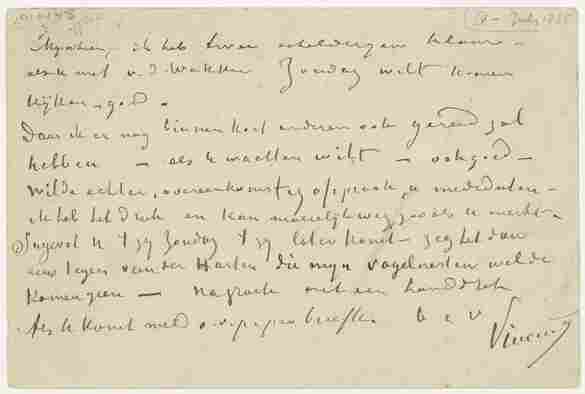 ik heb twee schilderijen klaar –
als u met v. d. Wakker Zondag wilt komen
kijken, goed.
Daar ik er nog binnen kort anderen ook gereed zal
hebben – als u wachten wilt – ook goed –
Wilde echter, overeenkomstig afspraak, u mededeelen –
ik heb het druk en kan moeielijk weg zooals u merkt.
Ingeval u Zondag later komt – zeg het dan
eens tegen van der Harten die mijn vogelnesten wilde
komen zien – na groete met een handdruk
Als u komt met briefk. t. à v.
Vincent